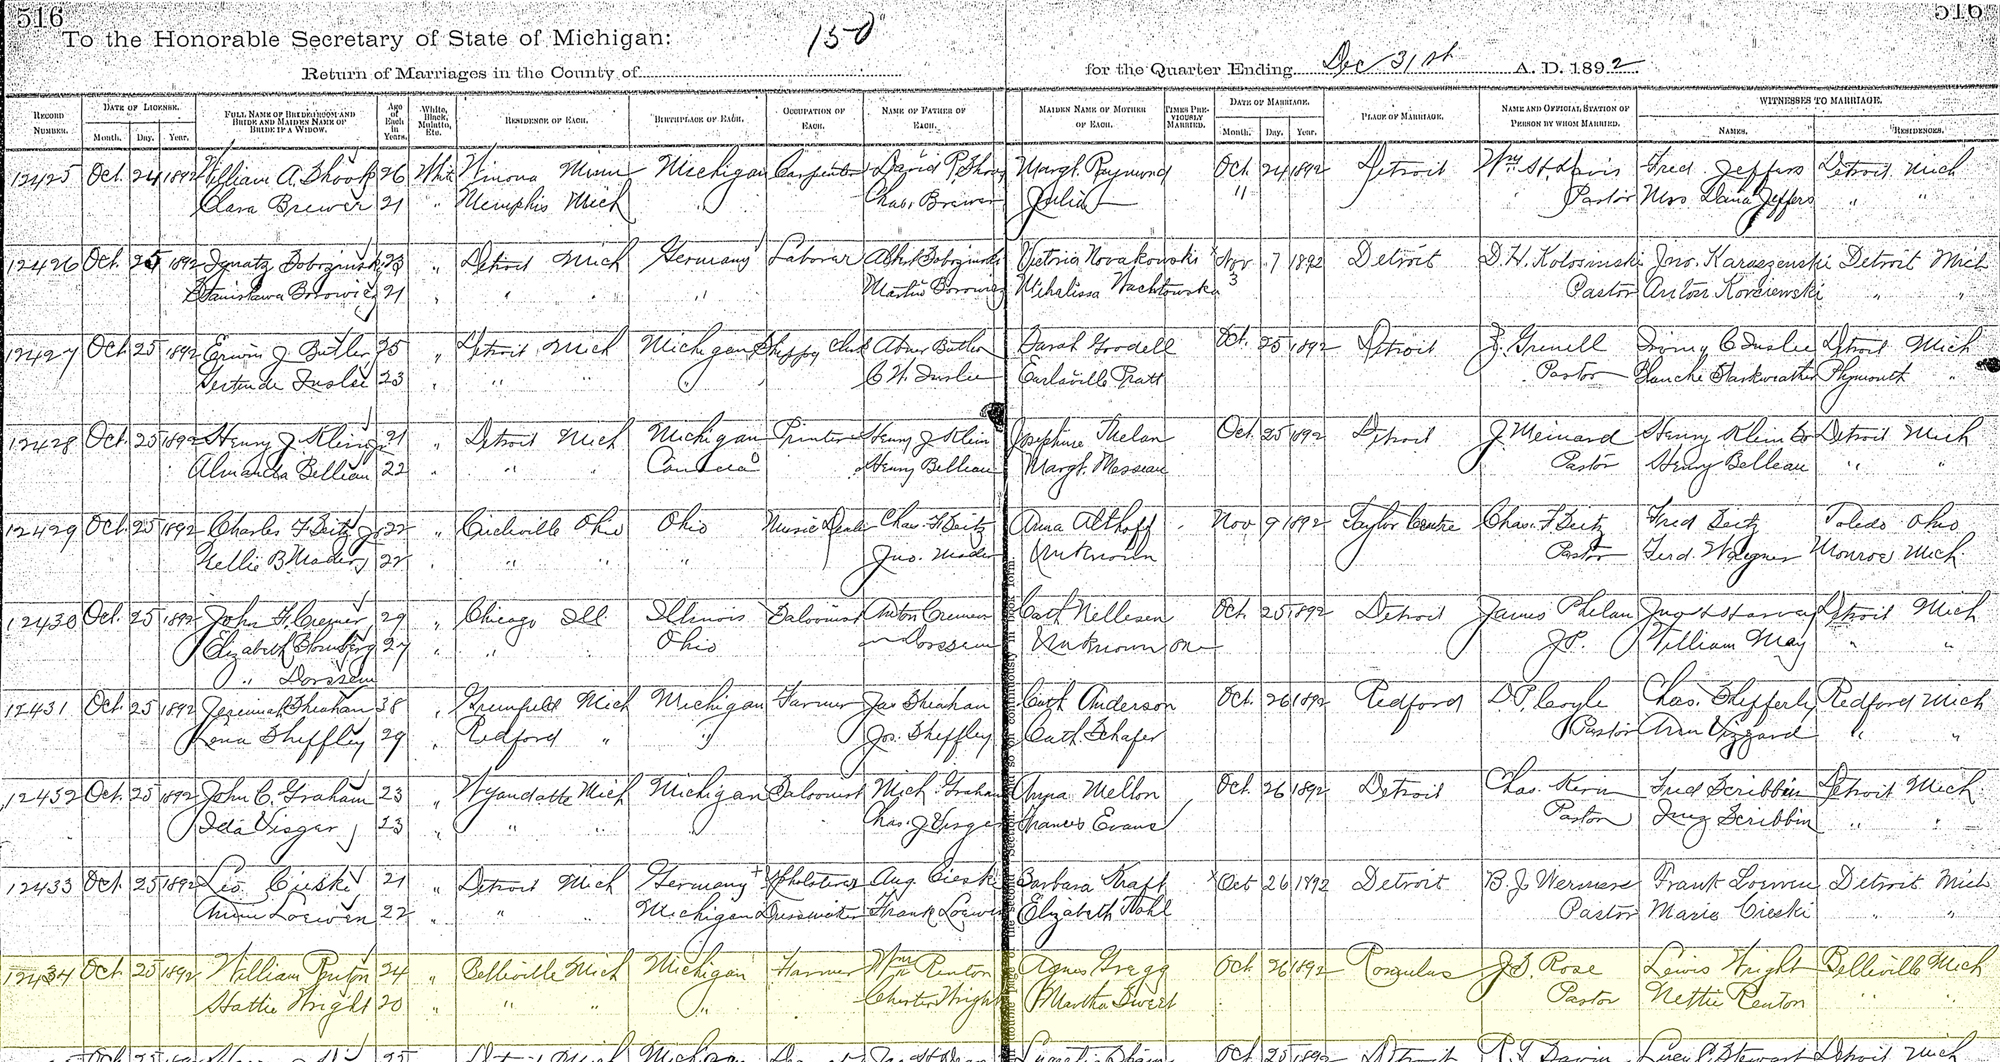 516 516
To the Honorable Secretary of State of Michigan: 150
Return of Marriages in the County of for the Quarter Ending Dec 31st A. D. 1892
RECORD NUMBER. DATE OF LICENSE. Month. Day. Year. FULL NAME OF BRIDEGROOM AND BRIDE AND MAIDEN NAME OF BRIDE IF A WIDOW. Age of Each in Years. White, Black, Mulatto, Etc. RESIDENCE OF EACH. BIRTHPLACE OF EACH. OCCUPATION OF EACH. NAME OF FATHER OF EACH. MAIDEN NAME OF MOTHER OF EACH. TIMES PREVIOUSLY MARRIED. DATE OF MARRIAGE. Month. Day. Year. PLACE OF MARRIAGE. NAME AND OFFICIAL STATION OF PERSON BY WHOM MARRIED. WITNESSES TO MARRIAGE. NAMES. RESIDENCES.
12425 Oct. 24 1892 William A. Shook 26 White Winona Minn Michigan Carpenter David P. Shook Margt. Raymond Oct. 24 1892 Detroit Wm. St. Davis Fred Jeffers Detroit Mich
Clara Brewer 21 " Memphis Mich " Chas. Brewer Julia — " Pastor Mrs Dana Jeffers " "
12426 Oct. 25 1892 Ignatz 23 " Detroit Mich Germany Laborer Victoria Novakowski Nov 7 1892 Detroit Detroit Mich
Stanislawa Borowicz 21 " " " Martin Borowicz 3 Pastor Anton " "
12427 Oct 25 1892 Erwin J Butler 25 " Detroit Mich Michigan Shippg Clerk Abner Butler Sarah Goodell Oct. 25 1892 Detroit Z. Grenell Irving C Inslee Detroit Mich
Gertrude Inslee 23 " " " " C H. Inslee Pratt Pastor Blanche Starkweather Plymouth "
12428 Oct. 25 1892 Henry J. Klein Jr. 21 " Detroit Mich Michigan Printer Henry J Klein Josephine Thelan Oct. 25 1892 Detroit J Meinard Henry Klein Detroit Mich
Almanda Belleau 22 " " " Canada Henry Belleau Margt. Masseau Pastor Henry Belleau " "
12429 Oct. 25 1892 Charles F. Beitz Jr 22 " Circleville Ohio Ohio Music Dealer Chas. F Beitz Anna Althoff Nov 9 1892 Taylor Centre Chas. F Beitz Fred Beitz Toledo Ohio
Nellie B Mader 22 " " " Jno. Mader Unknown Pastor Ferd. Wagner Monroe Mich.
12430 Oct. 25 1892 John F. Cremer 29 " Chicago Ill. Illinois Saloonist Anton Cremer Cath Nellesen Oct. 25 1892 Detroit James Phelan Detroit Mich
Elizabeth Blomberg 27 " " " Ohio — Dorssem Unknown one J.P. William May " "
" Dorssem
12431 Oct. 25 1892 Jeremiah Sheahan 38 " Greenfield Mich Michigan Farmer Jas Sheahan Cath Anderson Oct. 26 1892 Redford D. P. Coyle Chas. Shefferly Redford Mich
Lena Sheffley 29 " Redford " " Jos. Sheffley Cath. Schafer Pastor Ann Vizzard " "
12432 Oct. 25 1892 John C. Graham 23 " Wyandotte Mich Michigan Saloonist Mich. Graham Anna Mellon Oct. 26 1892 Detroit Chas. Fred Scribbin Detroit Mich
Ida Visger 23 " " " Chas. J Visger Frances Evans Pastor Inez Scribbin " "
12433 Oct. 25 1892 Leo. Cieski 21 " Detroit Mich Germany Upholsterer Aug. Cieski Barbara Kraft Oct 26 1892 Detroit B. J. Wermers Frank Loewen Detroit Mich
Annie Loewen 22 " " " Michigan Dressmaker Frank Loewen Elizabeth Pastor Marie Cieski " "
12434 Oct 25 1892 William Renton 24 " Belleville Mich Michigan Farmer Wm Renton Agnes Gregg Oct 26 1892 Romulus J. S. Rose Lewis Wright Belleville Mich
Hattie Wright 20 " " " " Chester Wright Martha Sweet Pastor Nettie Renton " "
Oct 25 25 Detroit Mich Michigan Oct 25 1892 Detroit Lucy A. Stewart Detroit Mich